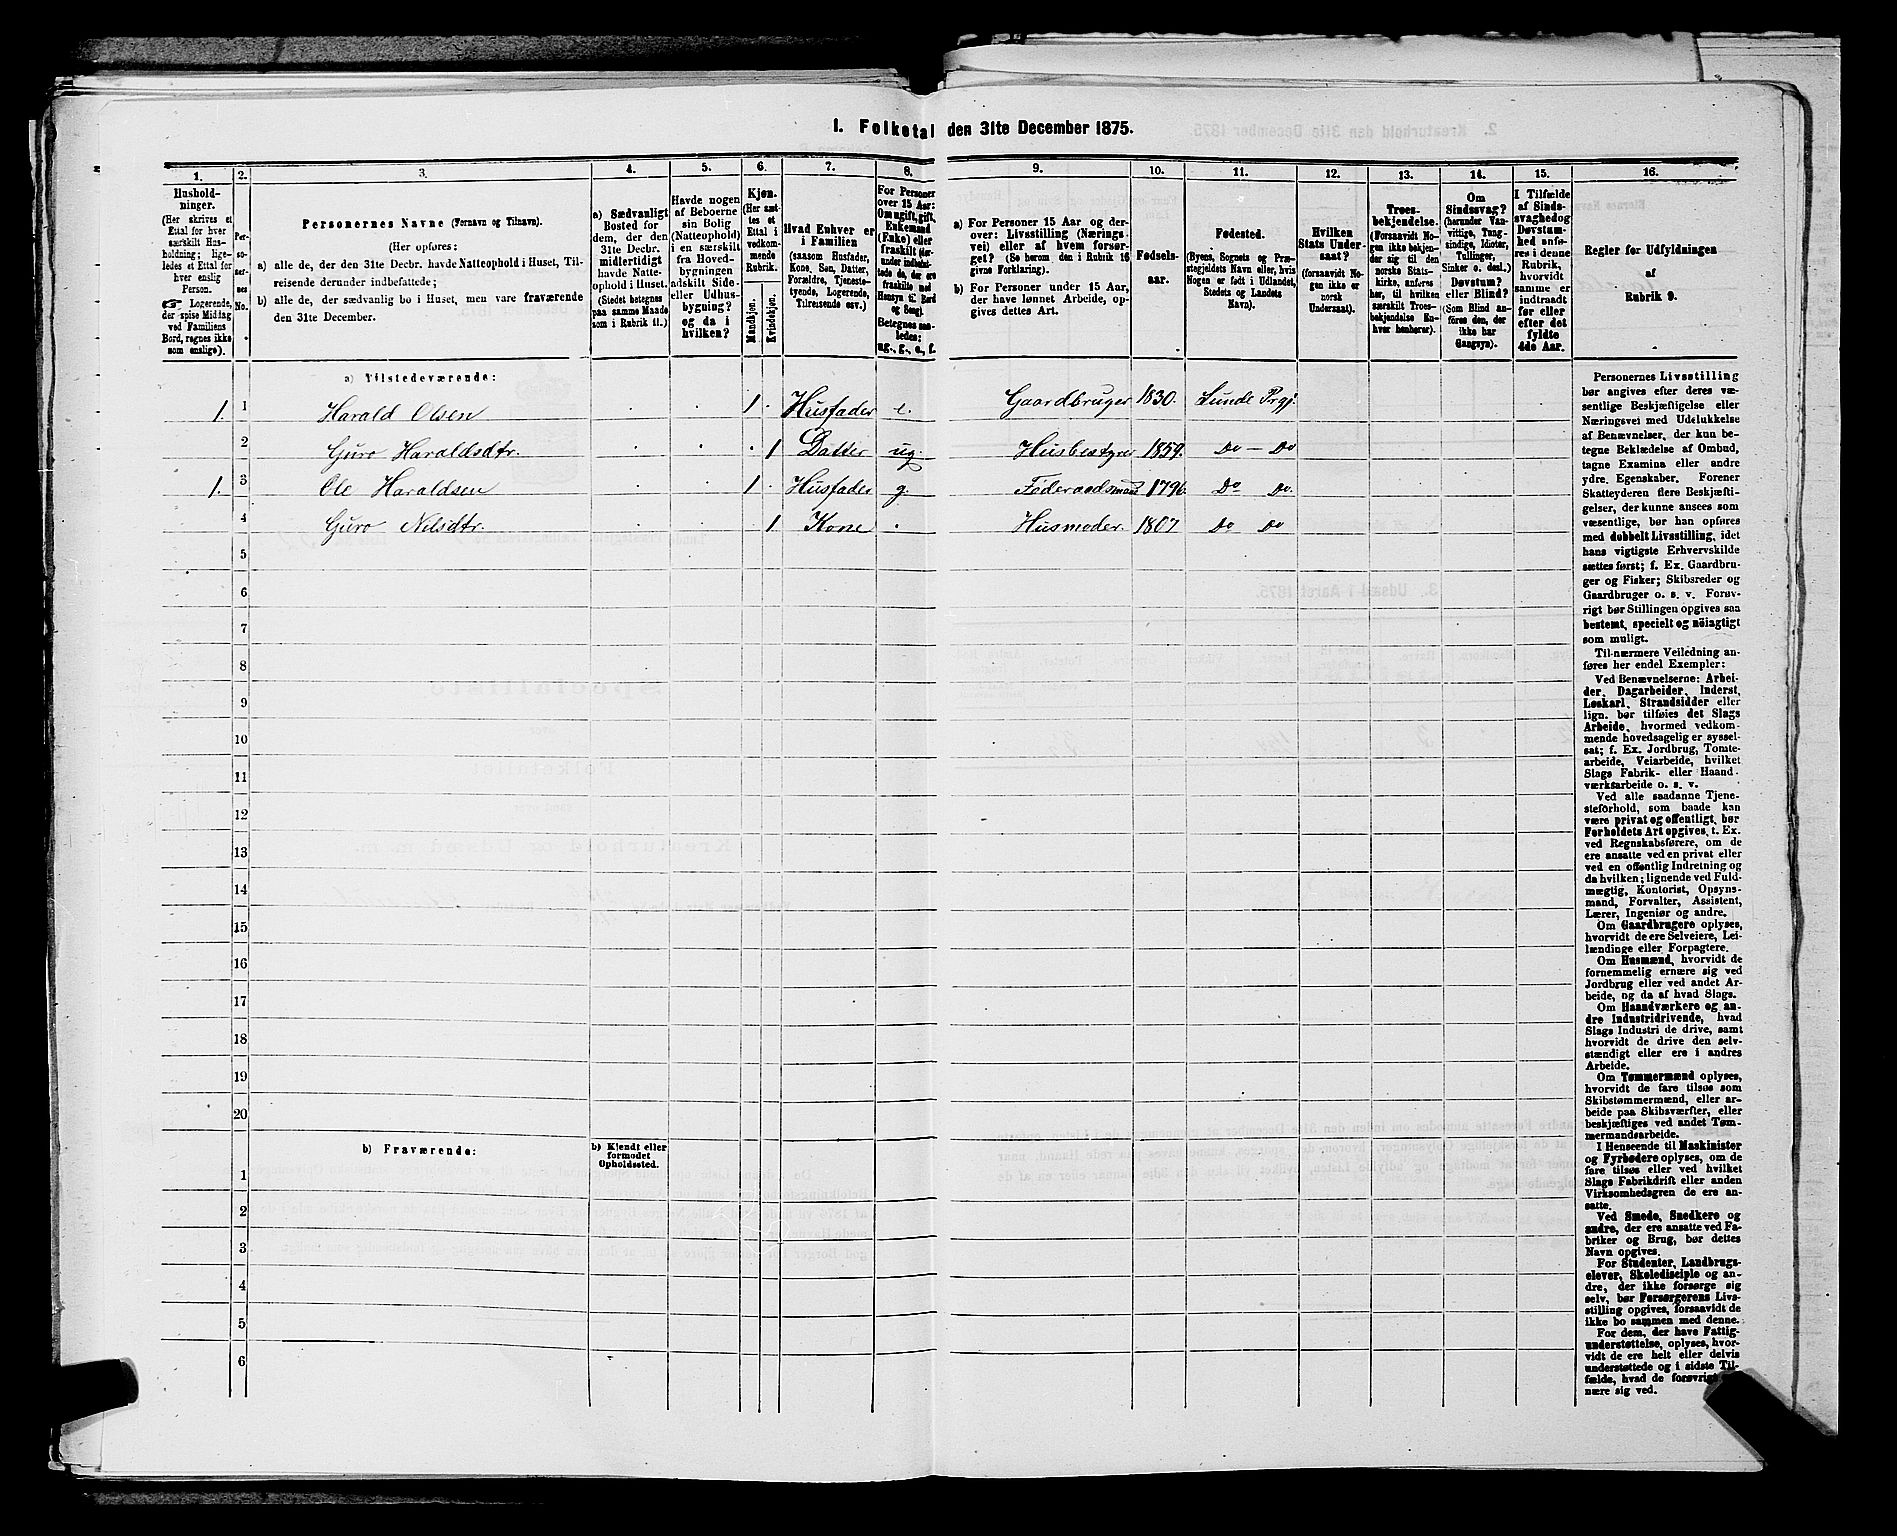 1. Folketal den 31te December 1875.
1. 2. 3. 4. 5. 6. 7. 8. 9. 10. 11. 12. 13. 14. 15. 16.
Hushold-
ninger.
(Her skrives et
Ettal for hver
særskilt Hus-
holdning; lige-
ledes et Ettal for
hver enslig
Person.
☞ Logerende,
der spise Middag
ved Familiens
Bord, regnes ikke
som enslige).
Per-
so-
ner-
nes
No.
Personernes Navne (Fornavn og Tilnavn).
(Her opføres:
a) alle de, der den 31te Decbr. havde Natteophold i Huset, Til-
reisende derunder indbefattede;
b) alle de, der sædvanlig bo i Huset, men vare fraværende
den 31te December.
a) Sædvanligt
Bosted for
dem, der den
31te Decbr.
midlertidigt
havde Natte-
ophold i Huset.
(Stedet betegnes
paa samme Maade
som i Rubrik 11.)
Havde nogen
af Beboerne
sin Bolig
(Natteophold)
i en særskilt
fra Hoved-
bygningen
adskilt Side-
eller Udhus-
bygning?
og da i
hvilken?
Kjøn.
(Her sæt-
tes et
Ettal i
vedkom-
mende
Rubrik.
Mandkjøn.
Kvindekjøn.
Hvad Enhver er
i Familien
(saasom Husfader,
Kone, Søn, Datter,
Forældre, Tjeneste-
tyende, Logerende,
Tilreisende osv.)
For Personer
over 15 Aar:
Om ugift, gift,
Enkemand
(Enke) eller
fraskilt (der-
under indbefat-
tede de, der ere
fraskilte med
Hensyn til Bord
og Seng).
Betegnes saa-
ledes:
ug., g., e., f.
a) For Personer 15 Aar og der-
over: Livsstilling (Nærings-
vei) eller af hvem forsør-
get? (Se herom den i Rubrik 16
givne Forklaring).
b) For Personer under 15 Aar,
der have lønnet Arbeide, op-
gives dettes Art.
Fødsels-
aar.
Fødested.
(Byens, Sognets og Præ-
stegjeldets Navn eller, hvis
Nogen er født i Udlandet,
Stedets og Landets
Navn).
Hvilken
Stats Under-
saat?
(forsaavidt No-
gen ikke er
norsk
Undersaat).
Troes-
bekjendelse.
(Forsaavidt No-
gen ikke bekjen-
der sig til den
norske Stats-
kirke, anføres
her, til hvilken
særskilt Troes-
bekjendelse En-
hver henhører).
Om
Sindssvag?
(herunder Van-
vittige, Tung-
sindige, Idioter,
Tullinger,
Sinker o. desl.)
Døvstum?
eller Blind?
(Som Blind an-
føres den, der
ikke har
Gangsyn).
I Tilfælde
af Sinds-
svaghed og
Døvstum-
hed anfø-
res i denne
Rubrik,
hvorvidt
samme er
indtraadt
før eller
efter det
fyldte
4de Aar.
Regler før Udfyldningen
af
Rubrik 9.
a) Tilstedeværende:
1. 1 Harald Olsen 1. Husfader e. Gaardbruger 1830. Lunde Prgj.
2 Guro Haraldsdtr. 1 Datter ug Husbestyrer 1859. Do - Do
1. 3 Ole Haraldsen 1. Husfader g. Føderaadsmand 1796. Do Do.
4 Guro Nilsdtr. 1. Kone Husmoder. 1807 Do Do
5
6
7
8
9
10
11
12
13
14
15
16
17
18
19
20
b) Fraværende:
b) Kjendt eller
formodet
Opholdssted.
1
2
3
4
5
6
Personernes Livsstilling
bør angives efter deres væ-
sentlige Beskjæftigelse eller
Næringsvei med Udelukkelse
af Benævnelser, der kun be-
tegne Beklædelse af Ombud,
tagne Examina eller andre
ydre. Egenskaber. Forener
Skatteyderen flere Beskjæfti-
gelser, der kunne ansees som
væsentlige, bør han opføres
med dobbelt Livsstilling, idet
hans vigtigste Erhvervskilde
sættes først; f. Ex. Gaardbru-
ger og Fisker; Skibsreder og
Gaardbruger o. s. v. Forøv-
rigt bør Stillingen opgives saa
bestemt, specielt og nöiagtigt
som muligt.
Til nærmere Veiledning an-
føres her endel Exempler:
Ved Benævnelserne: Arbei-
der, Dagarbeider, Inderst,
Løskarl, Strandsidder eller
lign. bør tilføies det Slags
Arbeide, hvormed vedkom-
mende hovedsagelig er syssel-
sat; f. Ex. Jordbrug, Tomte-
arbeide, Veiarbeide, hvilket
Slags Fabrik- eller Haand-
værksarbeide o. s. v.
Ved alle saadanne Tjene-
steforhold, som baade kan
være privat og offentligt, bør
Forholdets Art opgives, t. Ex.
ved Regnskabsførere, om de
ere ansatte ved en privat eller
ved en offentlig Indretning og
da hvilken; lignende ved Fuld-
mægtig, Kontorist, Opsyns-
mand, Forvalter, Assistent,
Lærer, Ingeniør og andre.
Om Gaardbrugere oplyses,
hvorvidt de ere Selveiere, Lei-
lændinge eller Forpagtere.
Om Husmænd, hvorvidt de
fornemmelig ernære sig ved
Jordbrug eller ved andet Ar-
beide, og da af hvad Slags.
Om Haandværkere og an-
dre Industridrivende, hvad
Slags Industri de drive, samt
hvorvidt de drive den selv-
stændigt eller ere i andres
Arbeide.
Om Tømmermænd oplyses,
hvorvidt de fare tilsøs som
Skibstømmermænd, eller ar-
beide paa Skibsværfter, eller
beskjæftiges ved andet Tøm-
mermandsarbeide.
I Henseende til Maskinister
og Fyrbødere oplyses, om de
fare tilsøs eller ved hvilket
Slags Fabrikdrift eller anden
Virksomhedsgren de ere an-
satte.
Ved Smede, Snedkere og
andre, der ere ansatte ved Fa-
briker og Brug, bør dettes
Navn opgives.
For Studenter, Landbrugs-
elever, Skoledisciple og an-
dre, der ikke forsørge sig
selv, bør Forsørgerens Livs-
stilling opgives, forsaavidt de
ikke bo sammen med denne.
For dem, der have Fattig-
understøttelse, oplyses, hvor-
vidt de ere helt eller delvis
understøttede og i sidste Til-
fælde, hvad de forøvrigt
nære sig ved.